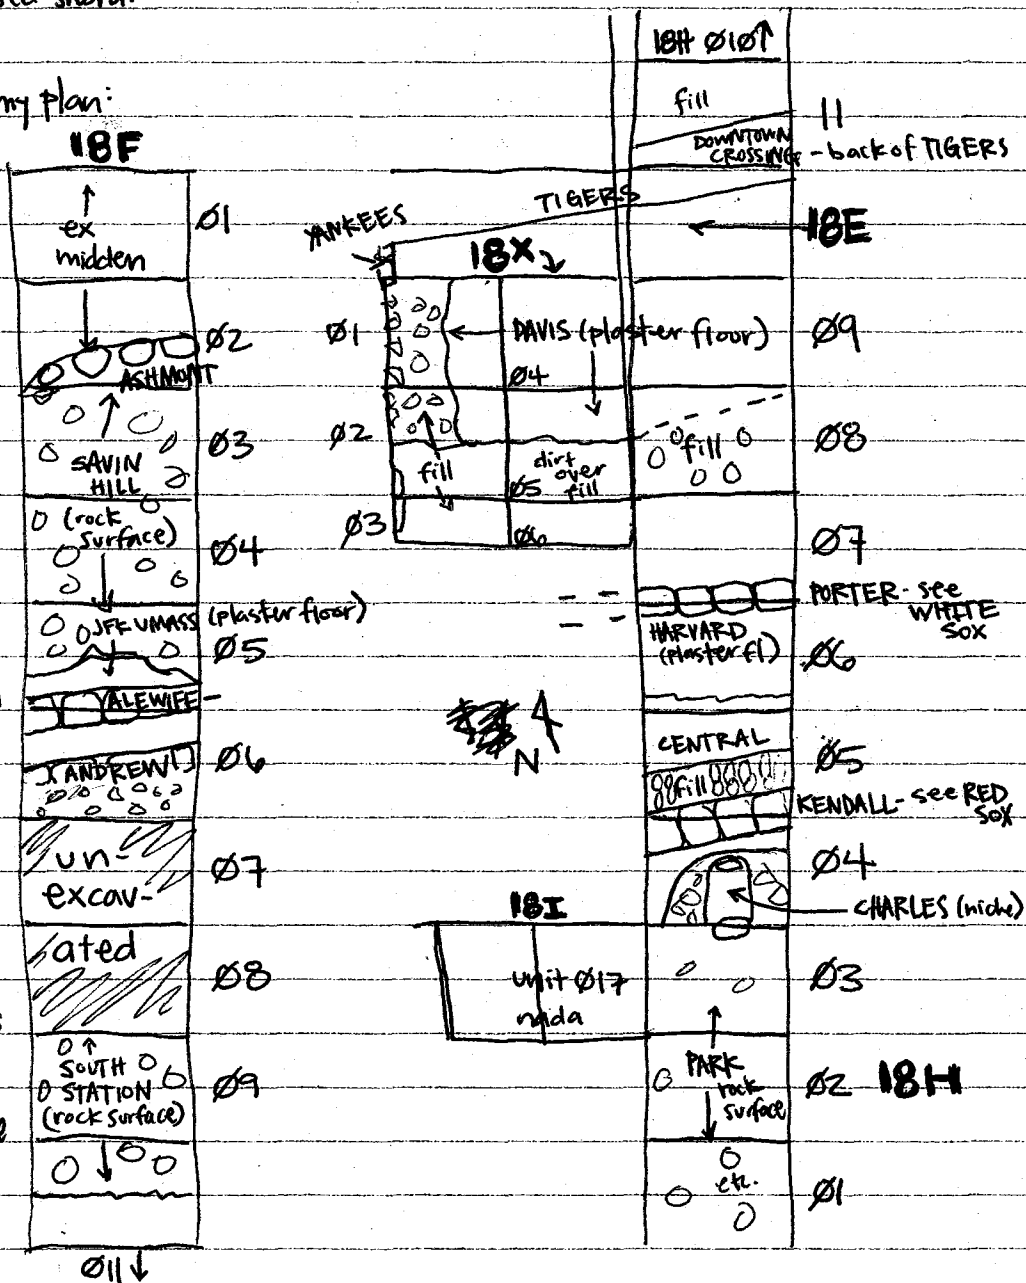 my plan:
18F
Ø1
ex
midden
Ø2
ASHMONT
Ø3
SAVIN
HILL
(rock
surface)
Ø4
JFK UMASS (plaster floor)
Ø5
ALEWIFE
Ø6
ANDREW
un-
excav-
Ø7
ated
Ø8
SOUTH
STATION
(rock surface)
Ø9
Ø11↓
YANKEES
TIGERS
18X
Ø1
DAVIS (plaster floor)
Ø4
Ø2
fill
dirt
over
fill
Ø5
Ø3
Ø6
N
18I
unit Ø17
nada
18H Ø1Ø↑
fill
11
DOWNTOWN
CROSSING - back of TIGERS
18E
Ø9
fill
Ø8
Ø7
PORTER - see
WHITE
SOX
HARVARD
(plaster fl)
Ø6
CENTRAL
Ø5
fill
KENDALL - see RED
SOX
Ø4
CHARLES (niche)
Ø3
PARK
rock
surface
Ø2
18H
etc.
Ø1